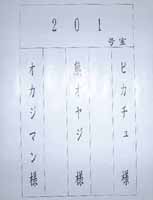 201
号室
ピカチュ様
熊オヤジ様
オカジマン様